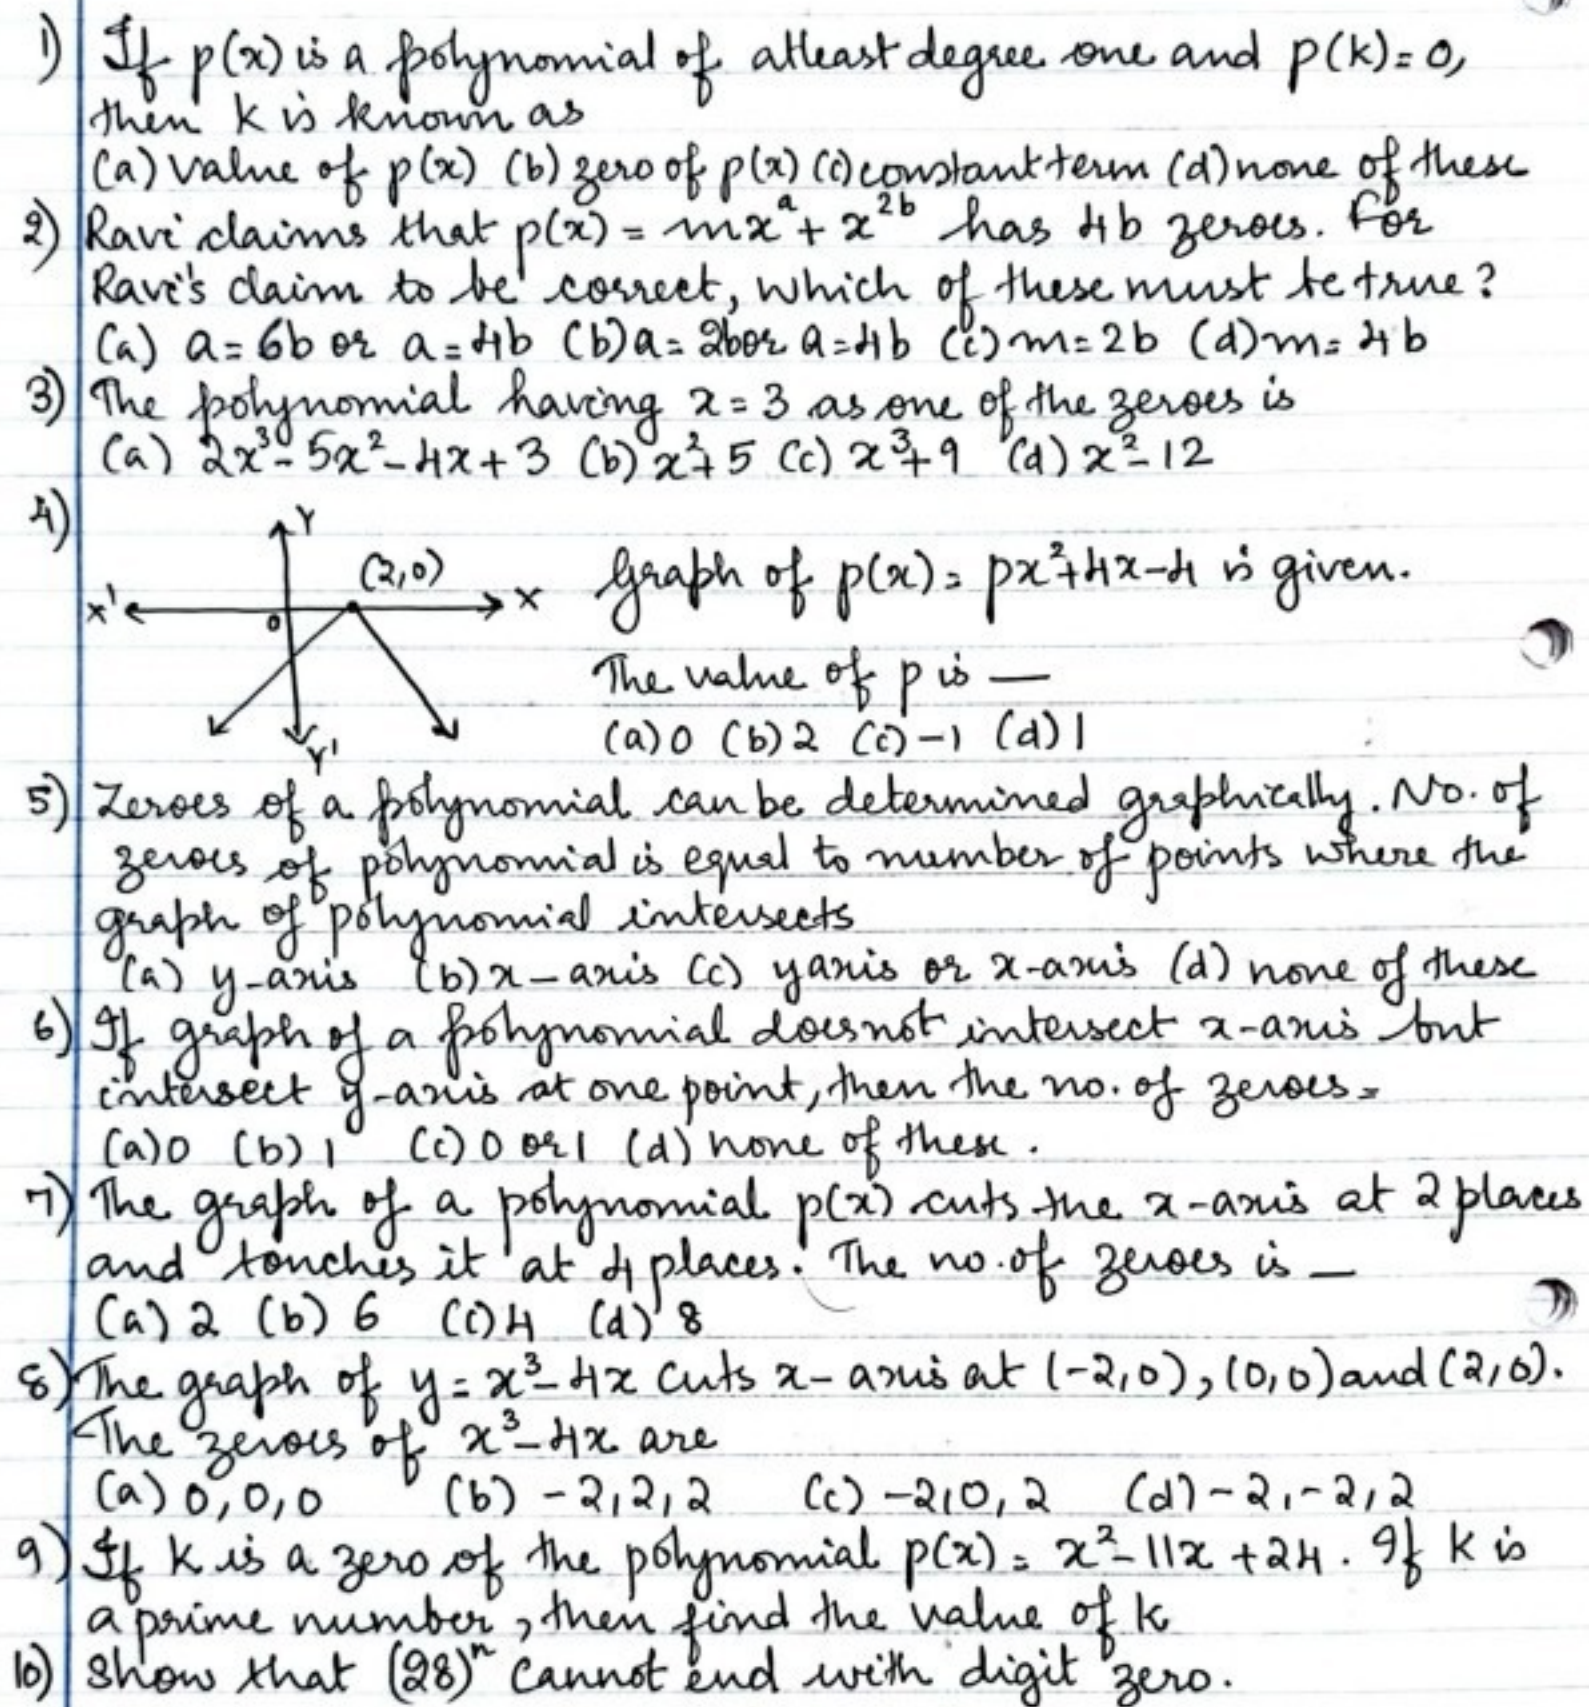 1) If p(x) is a polynomial of atleast degree one and p(k)=0,
then k is known as
(a) value of p(x) (b) zero of p(x) (c) constant term (d) none of these
2) Ravi claims that p(x) = mxᵃ + x²ᵇ has 4b zeroes. For
Ravi's claim to be correct, which of these must be true?
(a) a=6b or a=4b (b) a=2b or a=4b (c) m=2b (d) m=4b
3) The polynomial having x=3 as one of the zeroes is
(a) 2x³-5x²-4x+3 (b) x²+5 (c) x³+9 (d) x²-12
4)
Y
(2,0)
X' O X
Y'
Graph of p(x) = px²+4x-4 is given.
The value of p is —
(a) 0 (b) 2 (c) -1 (d) 1
5) Zeroes of a polynomial can be determined graphically. No. of
zeroes of polynomial is equal to number of points where the
graph of polynomial intersects
(a) y-axis (b) x-axis (c) y axis or x-axis (d) none of these
6) If graph of a polynomial does not intersect x-axis but
intersect y-axis at one point, then the no. of zeroes=
(a) 0 (b) 1 (c) 0 or 1 (d) none of these.
7) The graph of a polynomial p(x) cuts the x-axis at 2 places
and touches it at 4 places. The no. of zeroes is —
(a) 2 (b) 6 (c) 4 (d) 8
8) The graph of y=x³-4x cuts x-axis at (-2,0), (0,0) and (2,0).
The zeroes of x³-4x are
(a) 0,0,0 (b) -2,2,2 (c) -2,0,2 (d) -2,-2,2
9) If k is a zero of the polynomial p(x) = x²-11x+24. If k is
a prime number, then find the value of k
10) Show that (28)ⁿ cannot end with digit zero.